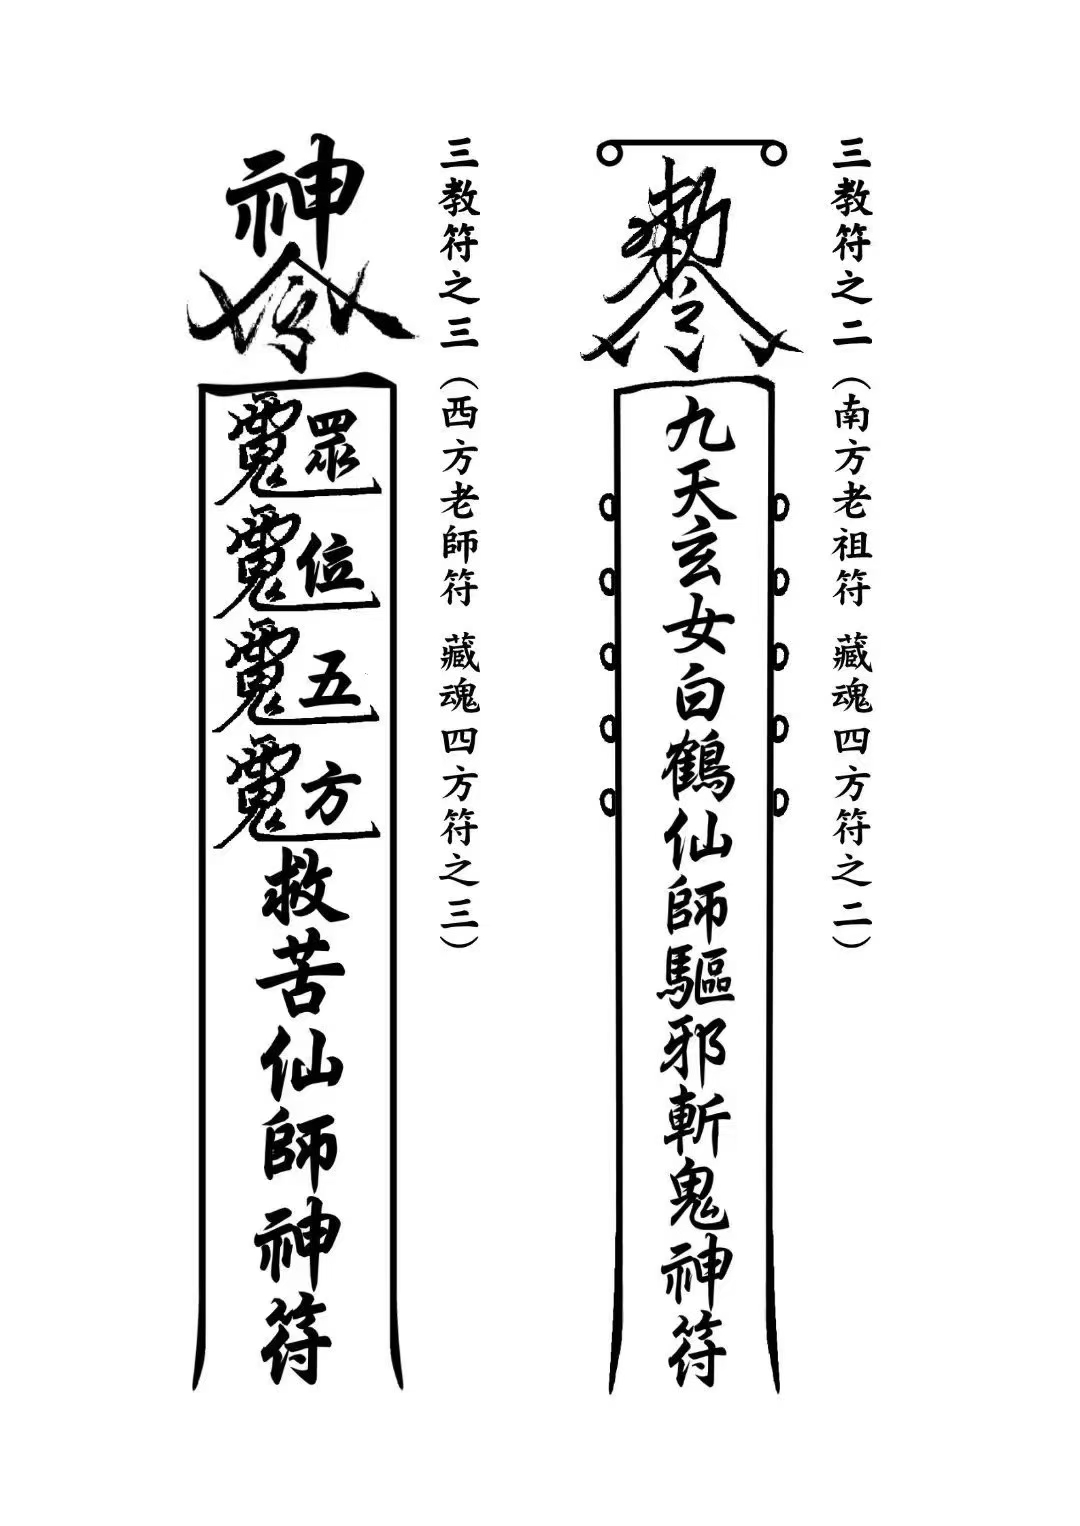 三教符之二（南方老祖符 藏魂四方符之二）
敕令
九天玄女白鶴仙師驅邪斬鬼神符
三教符之三（西方老師符 藏魂四方符之三）
神令
眾位五方
救苦仙師神符